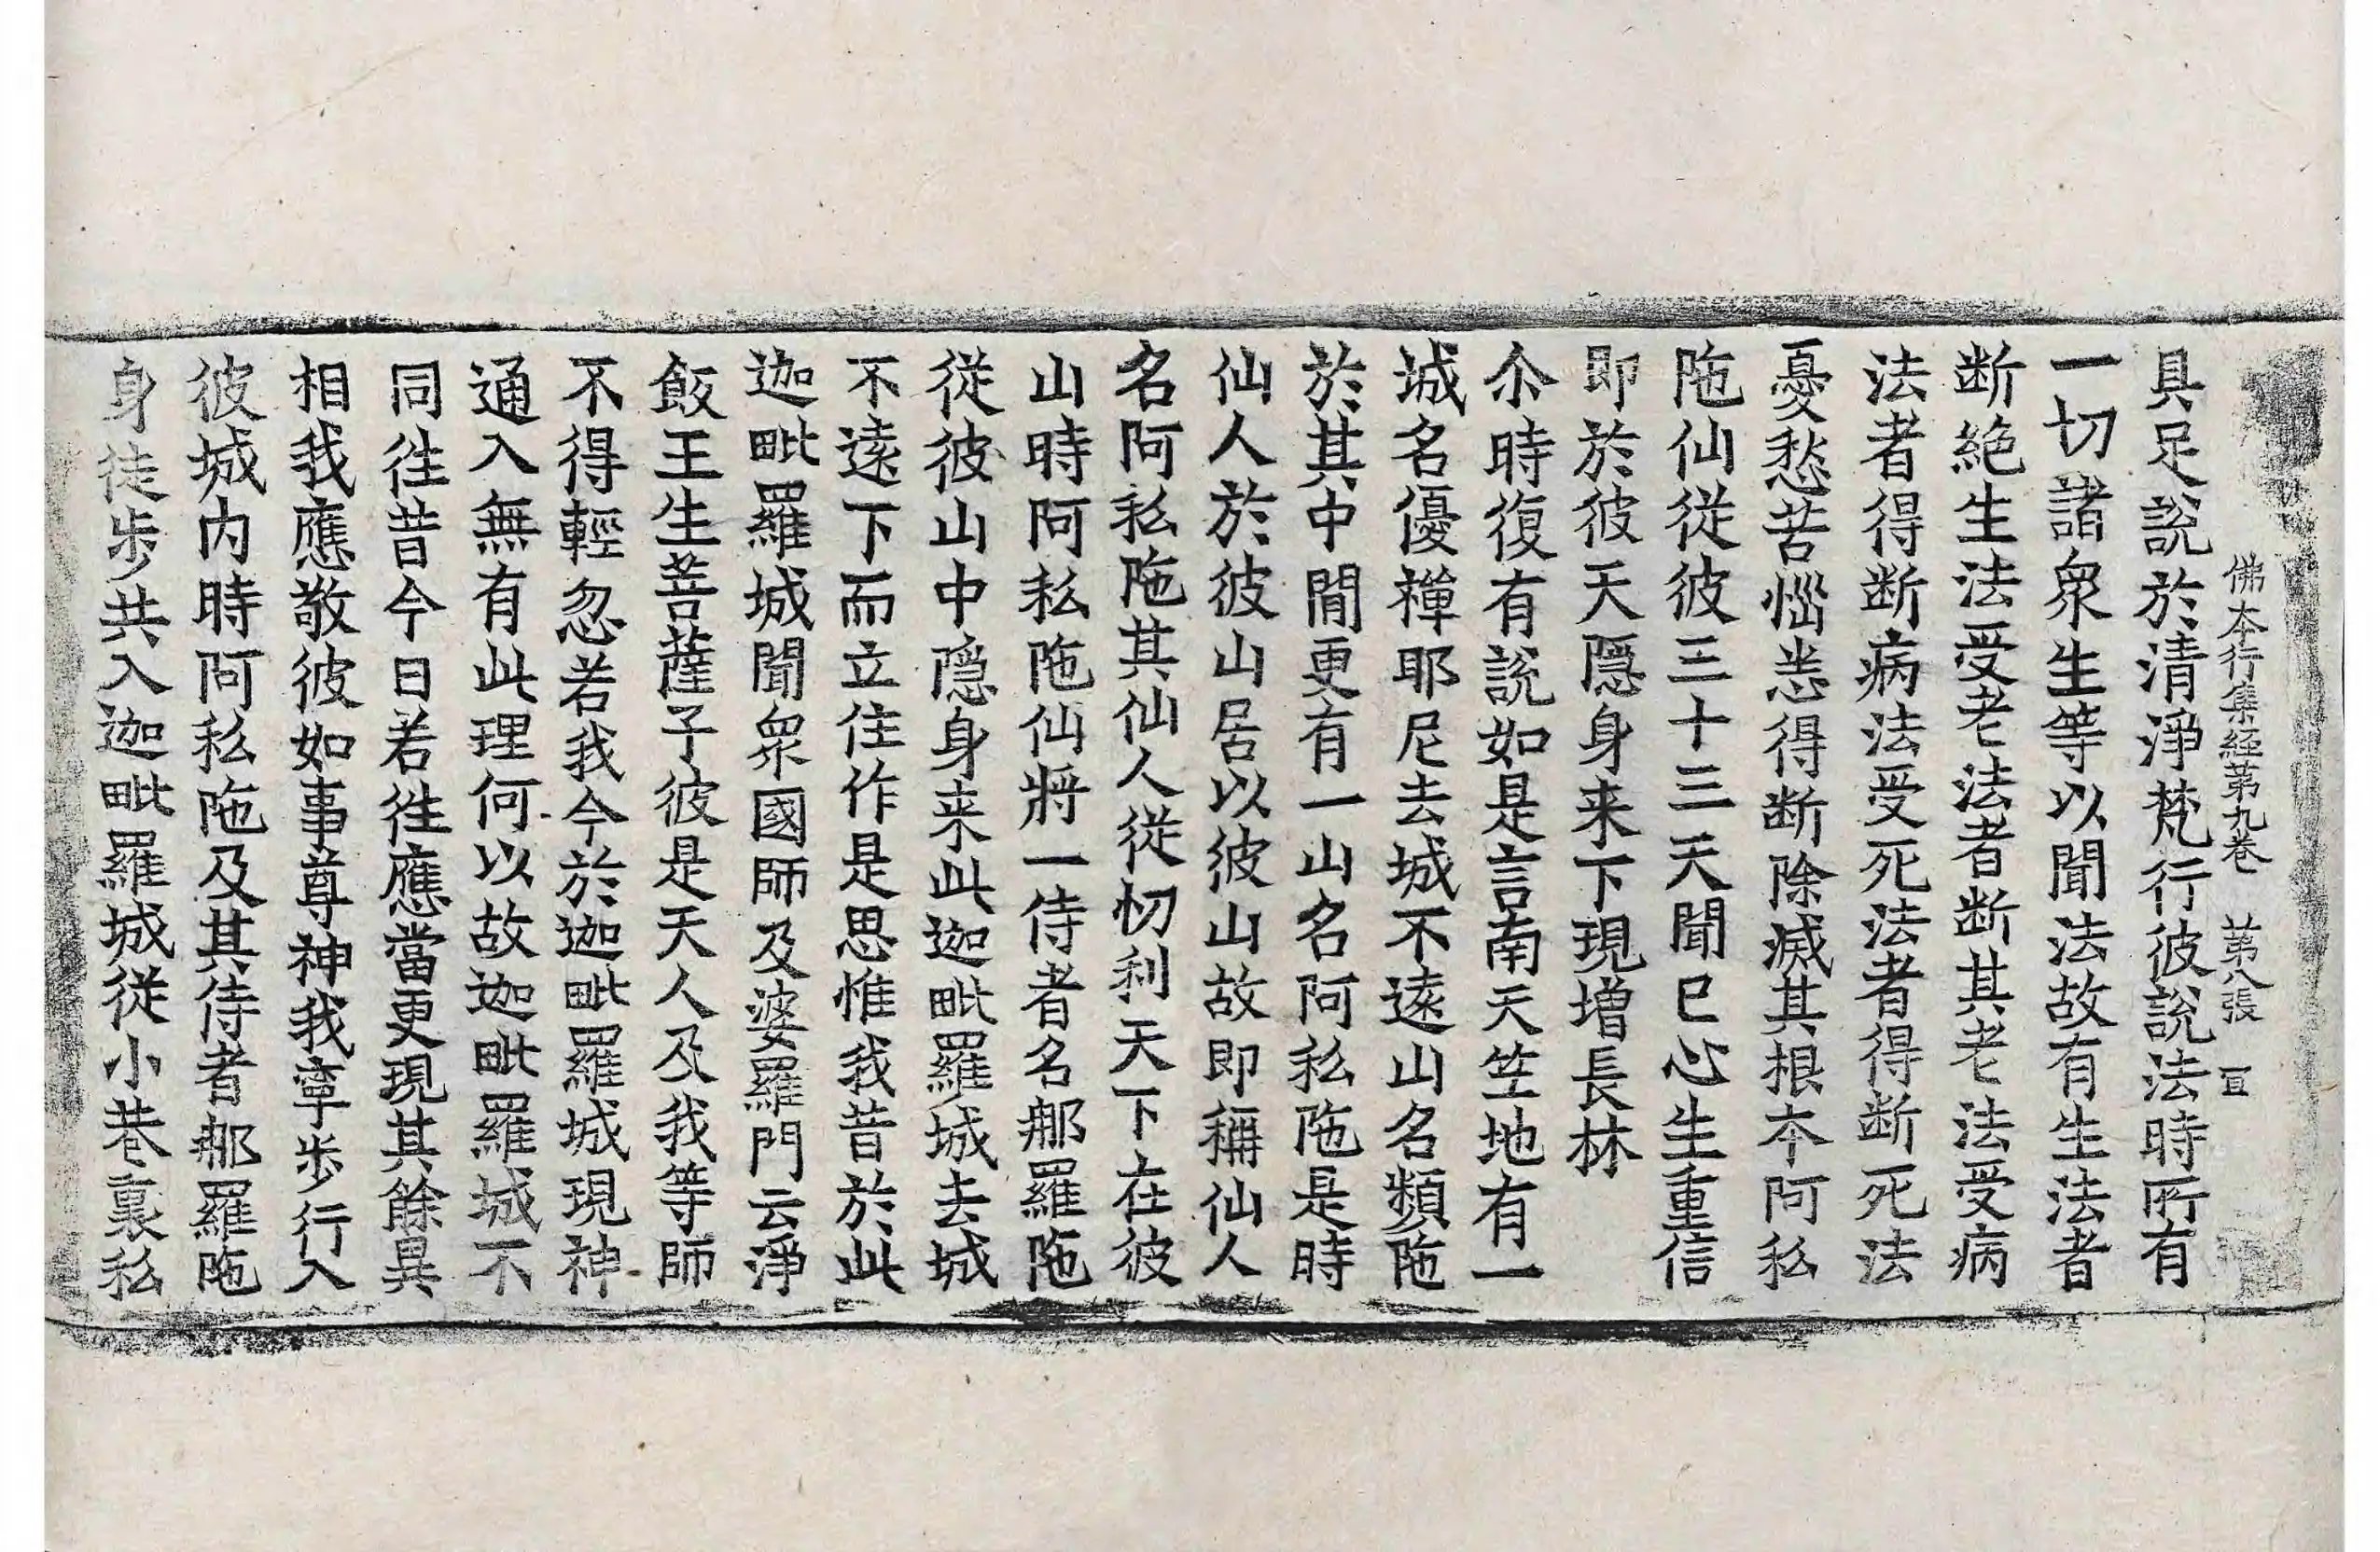 佛本行集經第九卷 第八張 亘
具足說於清淨梵行彼說法時所有
一切諸衆生等以聞法故有生法者
断絶生法受老法者断其老法受病
法者得断病法受死法者得断死法
憂愁苦惱恙得断除滅其根本阿私
陁仙從彼三十三天聞已心生重信
即於彼天隱身来下現增長林
尒時復有說如是言南天竺地有一
城名優禪耶尼去城不遠山名頻陁
於其中閒更有一山名阿私陁是時
仙人於彼山居以彼山故即稱仙人
名阿私陁其仙人從忉利天下在彼
山時阿私陁仙將一侍者名那羅陁
從彼山中隱身来此迦毗羅城去城
不遠下而立住作是思惟我昔於此
迦毗羅城聞衆國師及婆羅門云淨
飯王生菩薩子彼是天人及我等師
不得輕忽若我今於迦毗羅城現神
通入無有此理何以故迦毗羅城不
同往昔今日若往應當更現其餘異
相我應敬彼如事尊神我寧步行入
彼城内時阿私陁及其侍者那羅陁
身徒步共入迦毗羅城從小巷裏私